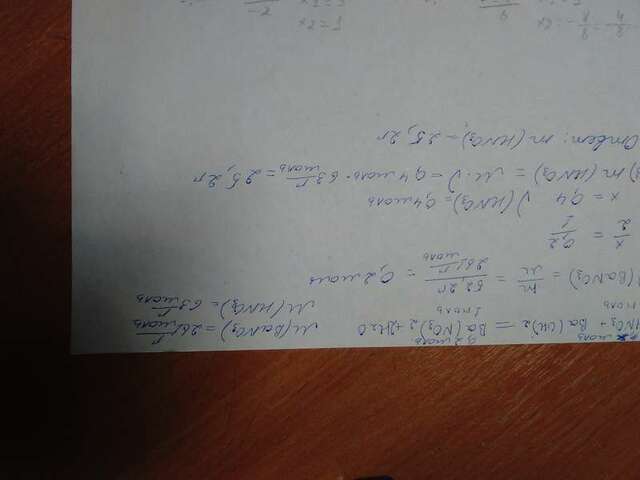 x моль 0,2 моль
HNO₃ + Ba(OH)₂ = Ba(NO₃)₂ + 2H₂O M(BaNO₃) = 261 г/моль
моль 1 моль M(HNO₃) = 63 г/моль
(BaNO₃) = m/M = 52,2 г / 261 г/моль = 0,2 моль
x/2 = 0,2/1
x = 0,4 ν(HNO₃) = 0,4 моль
) m(HNO₃) = M · ν = 0,4 моль · 63 г/моль = 25,2 г
Ответ: m(HNO₃) = 25,2 г